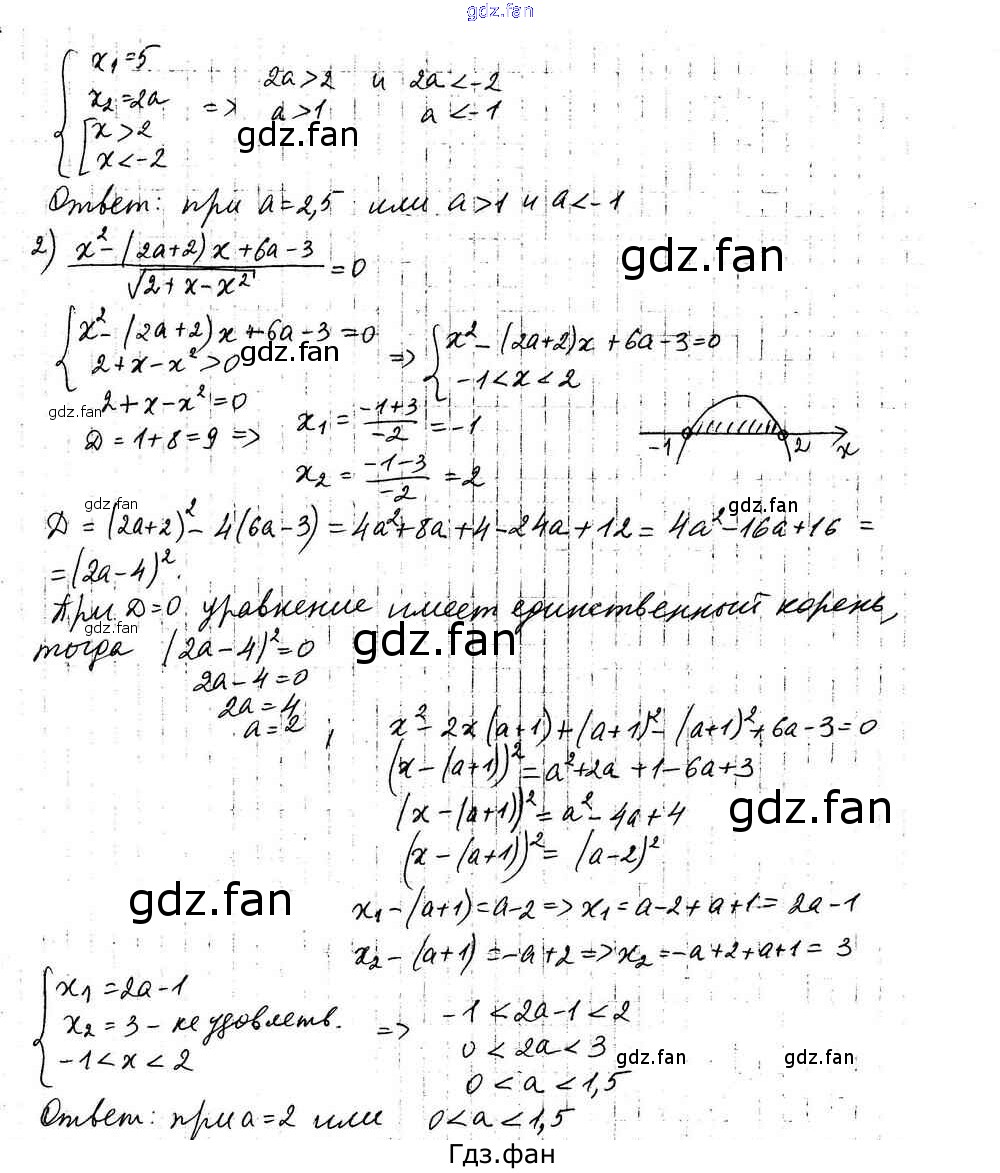 gdz.fan
{ x₁=5
x₂=2a => 2a>2 и 2a<-2
[ x>2 a>1 a<-1
x<-2
gdz.fan
Ответ: при a=2,5 или a>1 и a<-1
2) (x²-(2a+2)x+6a-3)/√(2+x-x²) = 0
gdz.fan
{ x²-(2a+2)x+6a-3=0
2+x-x²>0 => { x²-(2a+2)x+6a-3=0
-1<x<2
gdz.fan
gdz.fan
2+x-x²=0
Д=1+8=9 => x₁=(-1+3)/-2=-1
x₂=(-1-3)/-2=2
-1 2 x
gdz.fan
gdz.fan
Д=(2a+2)²-4(6a-3)=4a²+8a+4-24a+12=4a²-16a+16=
=(2a-4)².
При Д=0 уравнение имеет единственный корень,
gdz.fan
gdz.fan
тогда (2a-4)²=0
2a-4=0
2a=4
a=2 ; x²-2x(a+1)+(a+1)²-(a+1)²+6a-3=0
(x-(a+1))²=a²+2a+1-6a+3
(x-(a+1))²=a²-4a+4
gdz.fan
(x-(a+1))²=(a-2)²
gdz.fan
x₁-(a+1)=a-2=>x₁=a-2+a+1=2a-1
x₂-(a+1)=-a+2=>x₂=-a+2+a+1=3
{ x₁=2a-1
x₂=3-не удовлетв. => -1<2a-1<2
-1<x<2 0<2a<3
gdz.fan gdz.fan
0<a<1,5
Ответ: при a=2 или 0<a<1,5
Гдз.фан